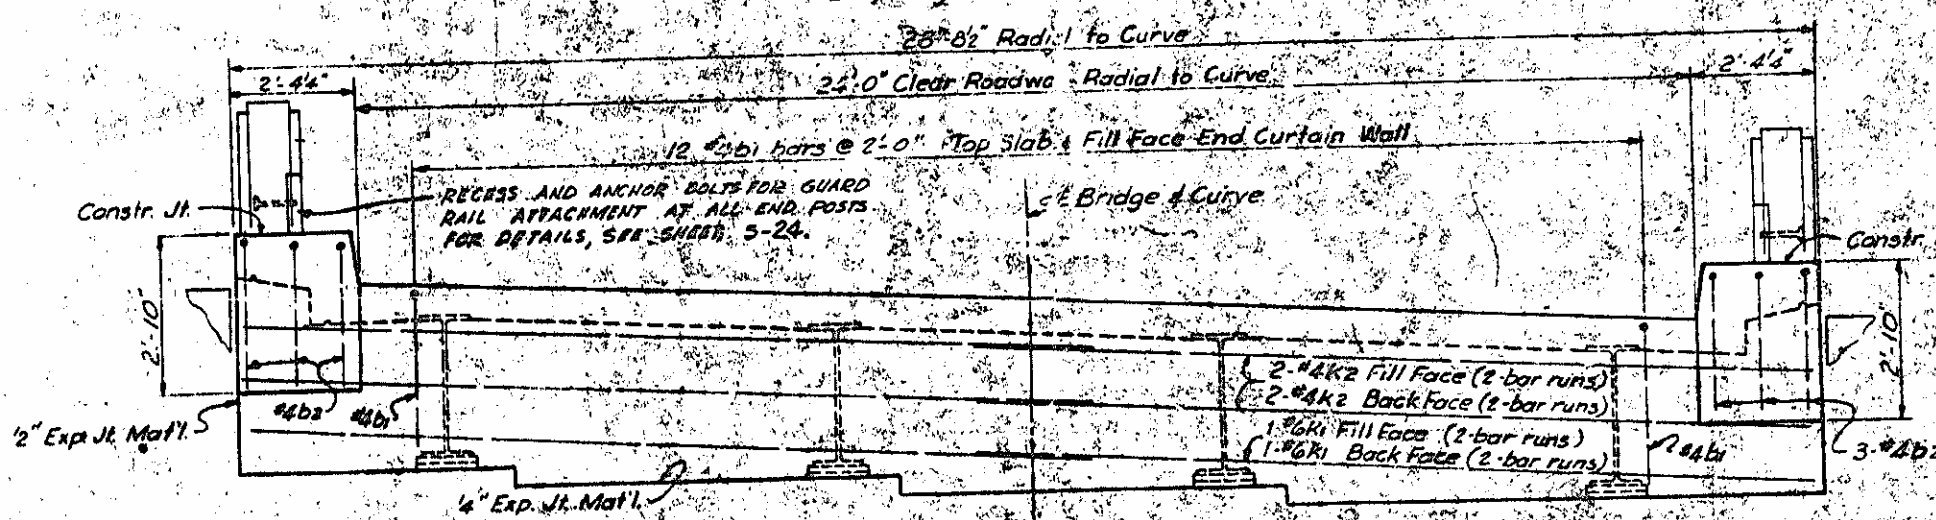 28'-8½" Radial to Curve
2'-4¼"
24'-0" Clear Roadwa - Radial to Curve
2'-4¼"
12 #4b1 bars @ 2'-0" Top Slab & Fill Face-End Curtain Wall
RECESS AND ANCHOR BOLTS FOR GUARD
RAIL ATTACHMENT AT ALL END POSTS
FOR DETAILS, SEE SHEET S-24.
℄ Bridge & Curve
Constr. Jt.
Constr.
2'-10"
2'-10"
2-#4K2 Fill Face (2-bar runs)
2-#4K2 Back Face (2-bar runs)
1-#6K1 Fill Face (2-bar runs)
1-#6K1 Back Face (2-bar runs)
#4b2
#4b1
#4b1
3-#4b2
½" Exp. Jt. Mat'l.
¼" Exp. Jt. Mat'l.